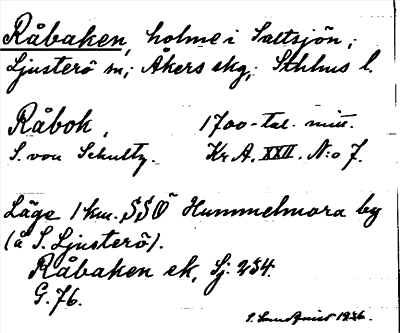 Råbaken, holme i Saltsjön,;
Ljusterö sn,; Åkers skg,; Sthlms l.
Råbok, 1700-tal. mitt.
S. von Schultz. Kr A. XXII. N:o 7.
Läge 1 km. SSO Hummelmora by
(å S. Ljusterö).
Råbaken ek, Lj. 234.
G. 76.
1936.